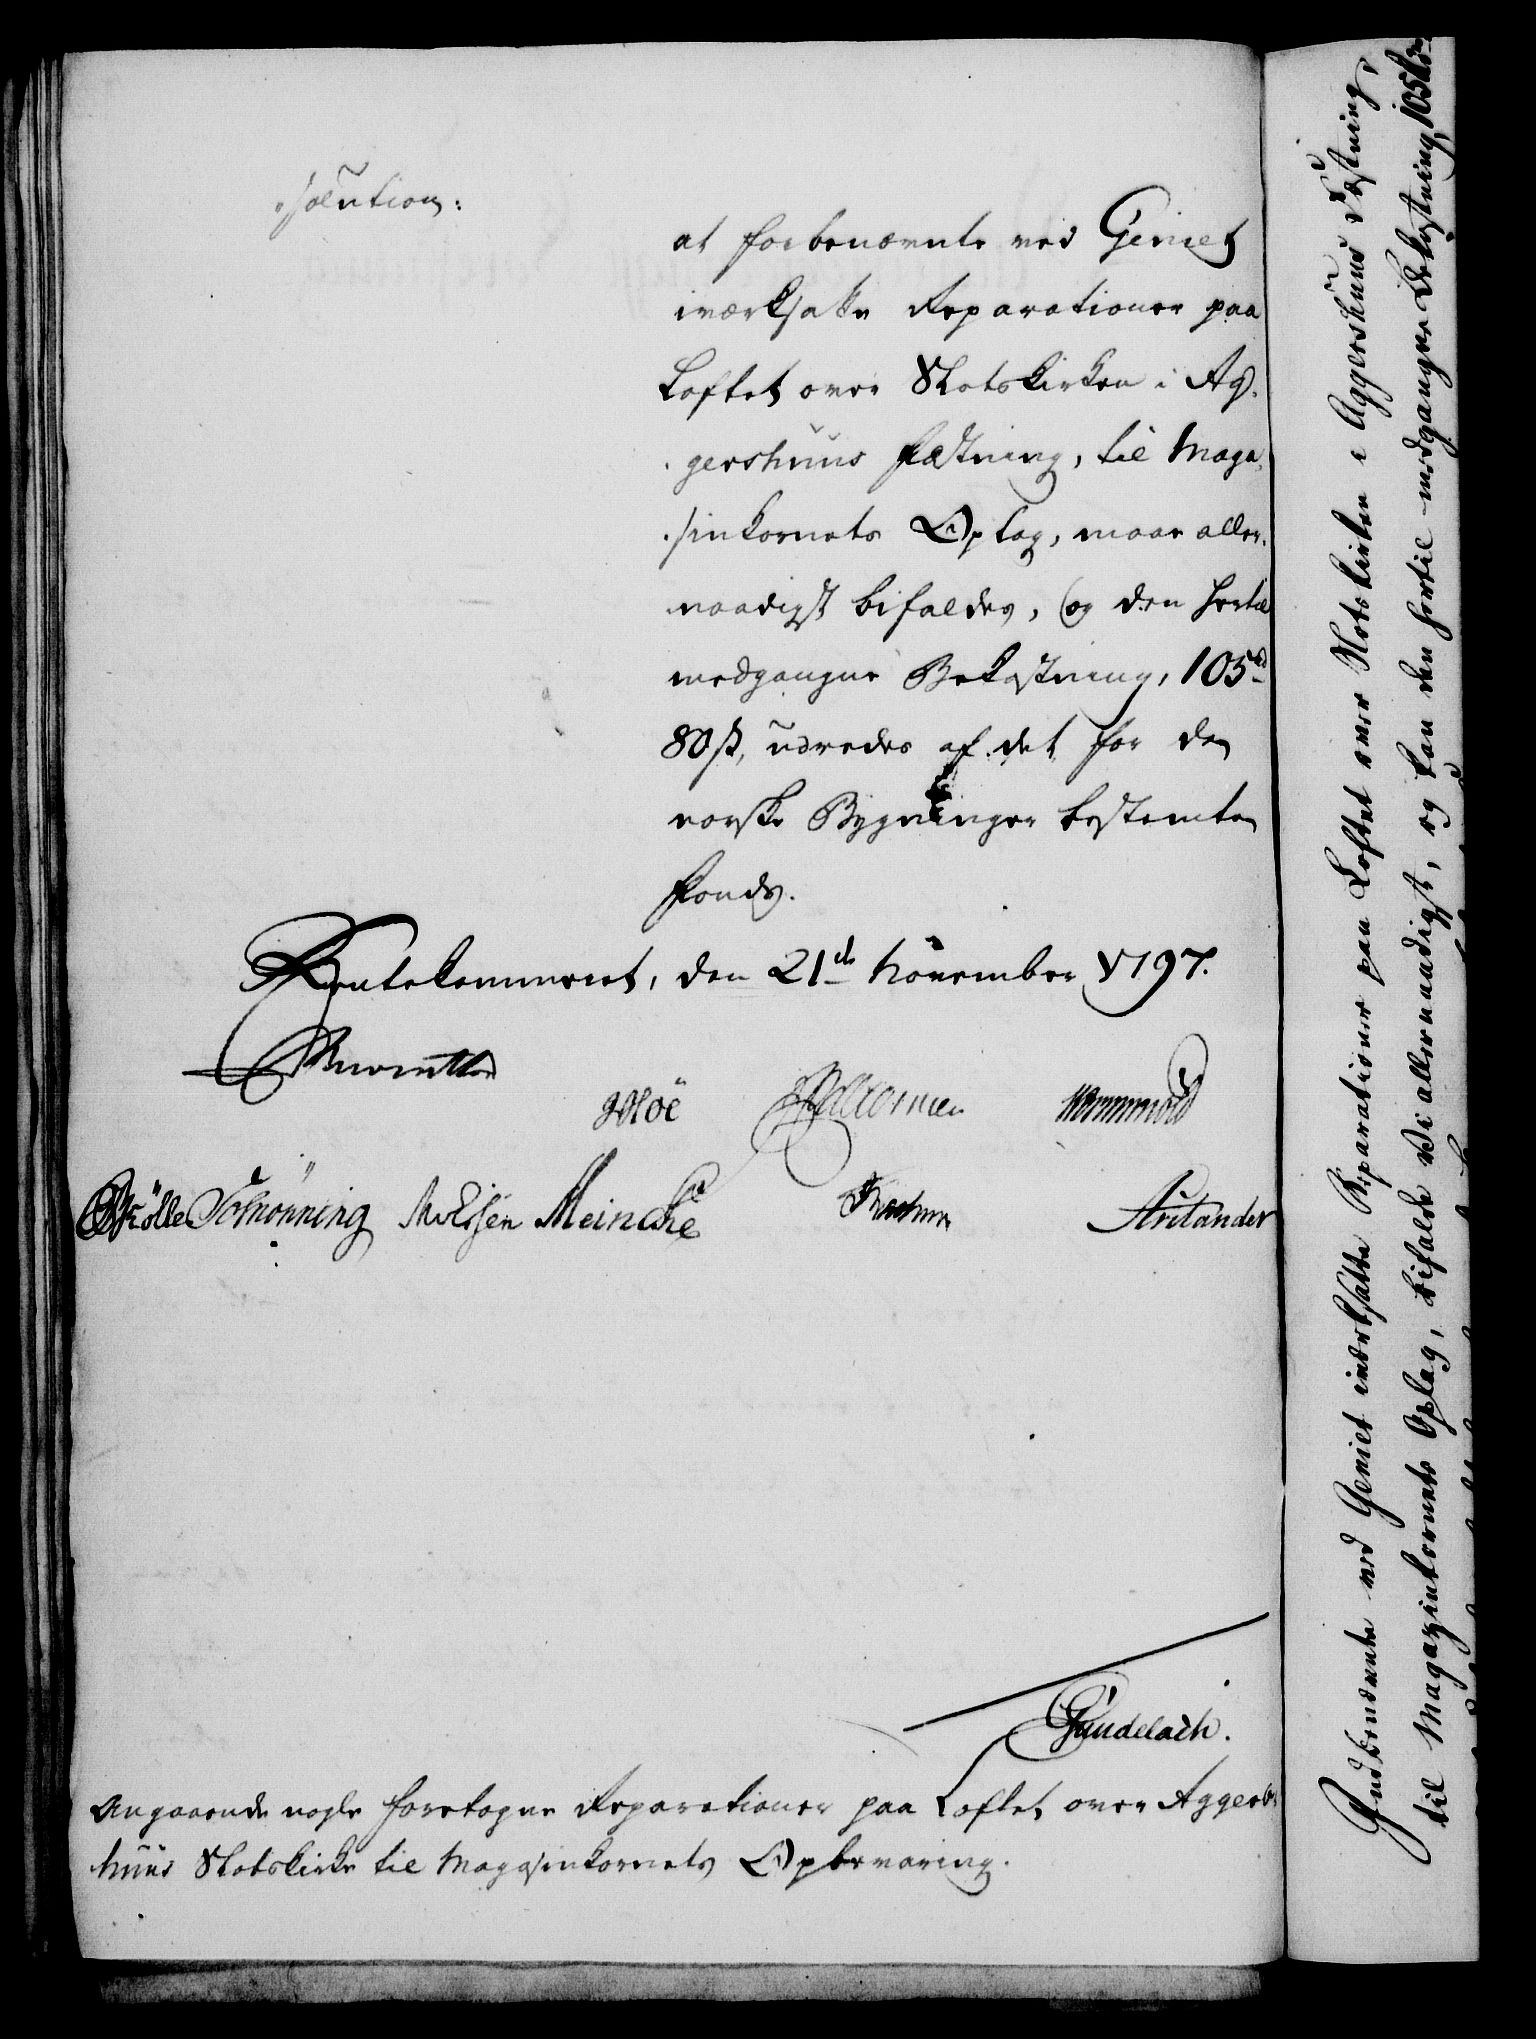 solution:
at forbenævnte ved Geniet
iværksatte Reparationer paa
Loftet over Slotskirken i Ag-
gershuus Fæstning, til Maga-
sinkornets Oplag, maae aller-
naadigst bifaldes, og den hertil
medgangne Bekostning, 105 rd
80 ß, udredes af det for de
norske Bygninger bestemte
Fonds.
Rentekammeret, den 21de November 1797.
Reventlow
Hoë Hammond
Schønning Meincke Arctander
Gundelach.
Angaaende nogle foretagne Reparationer paa Loftet over Aggers-
huus Slotskirke til Magasinkornets Opbevaring.
Indbenævnte ved Geniet iværksatte Reparationer paa Loftet over Slotskirken i Aggershuus Fæstning,
til Magazinkornets Oplag, bifalde Vi allernaadigst, og kan den hertil medgangne Bekostning 105 Rdr